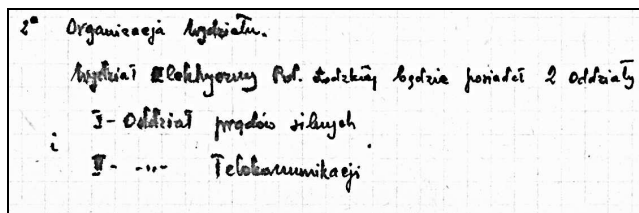 2° Organizacja Wydziału.
Wydział Elektryczny Pol. Łódzkiej będzie posiadał 2 Oddziały
I - Oddział prądów silnych
i
II - -"- Telekomunikacji